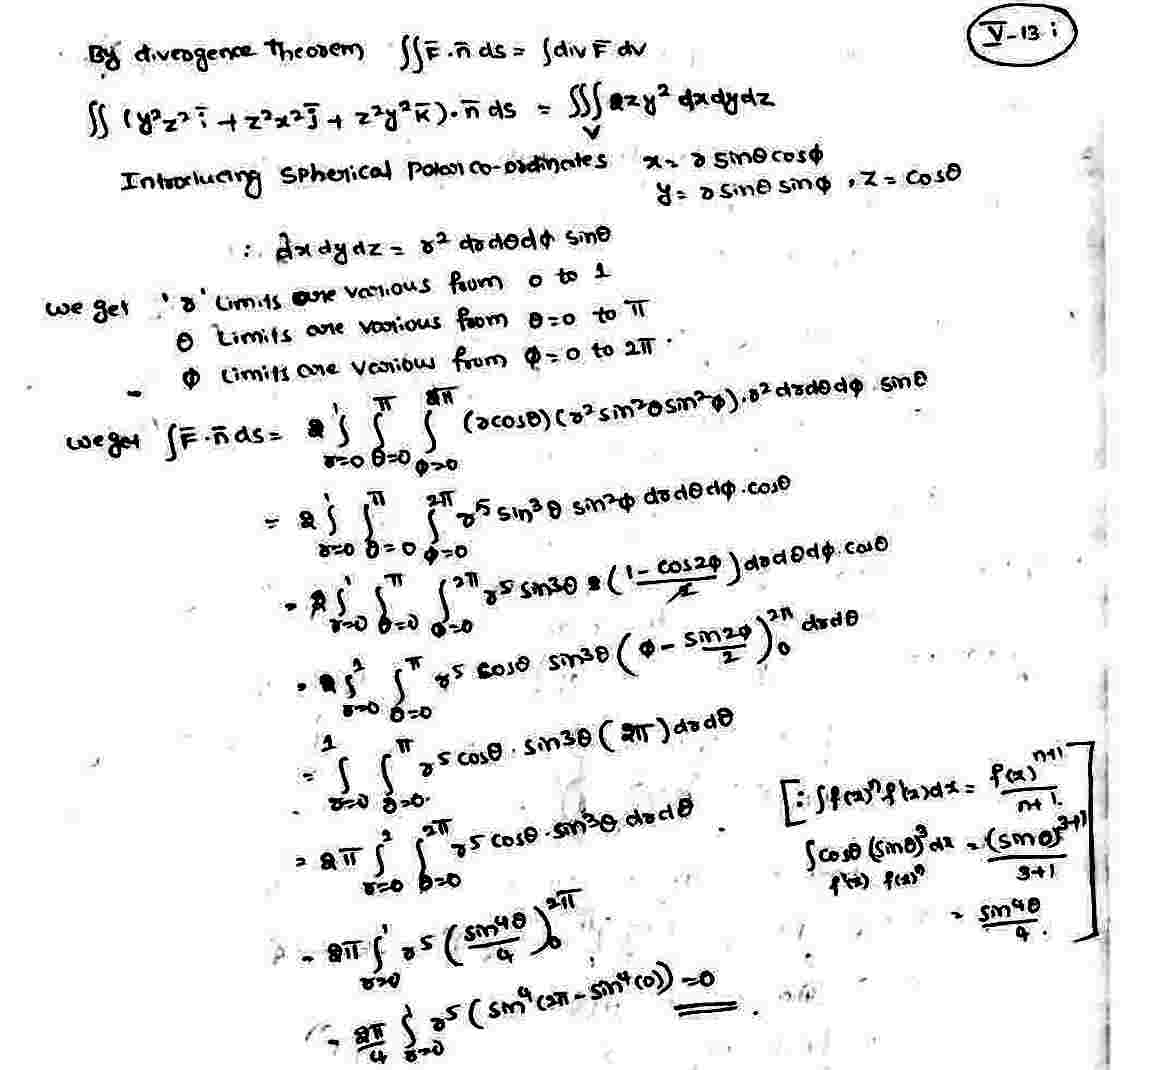 V-13 i
By divergence theorem ∬F̄.n̄ ds = ∫div F̄ dv
∬ (y²z² ī + z²x² j̄ + z²y² k̄).n̄ ds = ∭_V 2zy² dxdydz
Introducing spherical polar co-ordinates x = r sinθ cosφ
y = r sinθ sinφ , z = cosθ
∴ dxdydz = r² drdθdφ sinθ
we get 'r' Limits are various from 0 to 1
θ Limits are various from θ=0 to π
φ Limits are various from φ=0 to 2π.
we get ∫F̄.n̄ ds = 2 ∫_{r=0}^{1} ∫_{θ=0}^{π} ∫_{φ=0}^{2π} (rcosθ)(r² sin²θ sin²φ).r² drdθdφ sinθ
= 2 ∫_{r=0}^{1} ∫_{θ=0}^{π} ∫_{φ=0}^{2π} r⁵ sin³θ sin²φ drdθdφ.cosθ
= 2 ∫_{r=0}^{1} ∫_{θ=0}^{π} ∫_{φ=0}^{2π} r⁵ sin3θ (1-cos2φ / 2) drdθdφ.cosθ
= 2 ∫_{r=0}^{1} ∫_{θ=0}^{π} r⁵ cosθ sin3θ (φ - sin2φ/2)_0^{2π} drdθ
= ∫_{r=0}^{1} ∫_{θ=0}^{π} r⁵ cosθ . sin3θ (2π) drdθ
= 2π ∫_{r=0}^{1} ∫_{θ=0}^{2π} r⁵ cosθ . sin³θ drdθ
[∵ ∫f(x)ⁿ f'(x)dx = f(x)^{n+1} / n+1.
∫cosθ (sinθ)³ dx = (sinθ)^{3+1} / 3+1
f'(x) f(x)ⁿ
= sin4θ / 4. ]
= 2π ∫_{r=0}^{1} r⁵ (sin4θ / 4)_0^{2π}
= 2π/4 ∫_{r=0}^{1} r⁵ (sin⁴(2π - sin⁴(0)) = 0